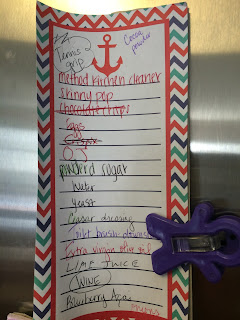 Tennis
grip
Cocoa
powder
method kitchen cleaner
skinny pop
chocolate chips
eggs
OJ
powderd sugar
Water
Yeast
Caesar dressing
Extra virgin olive oil
LIME JUICE
WINE
Blueberry Acai